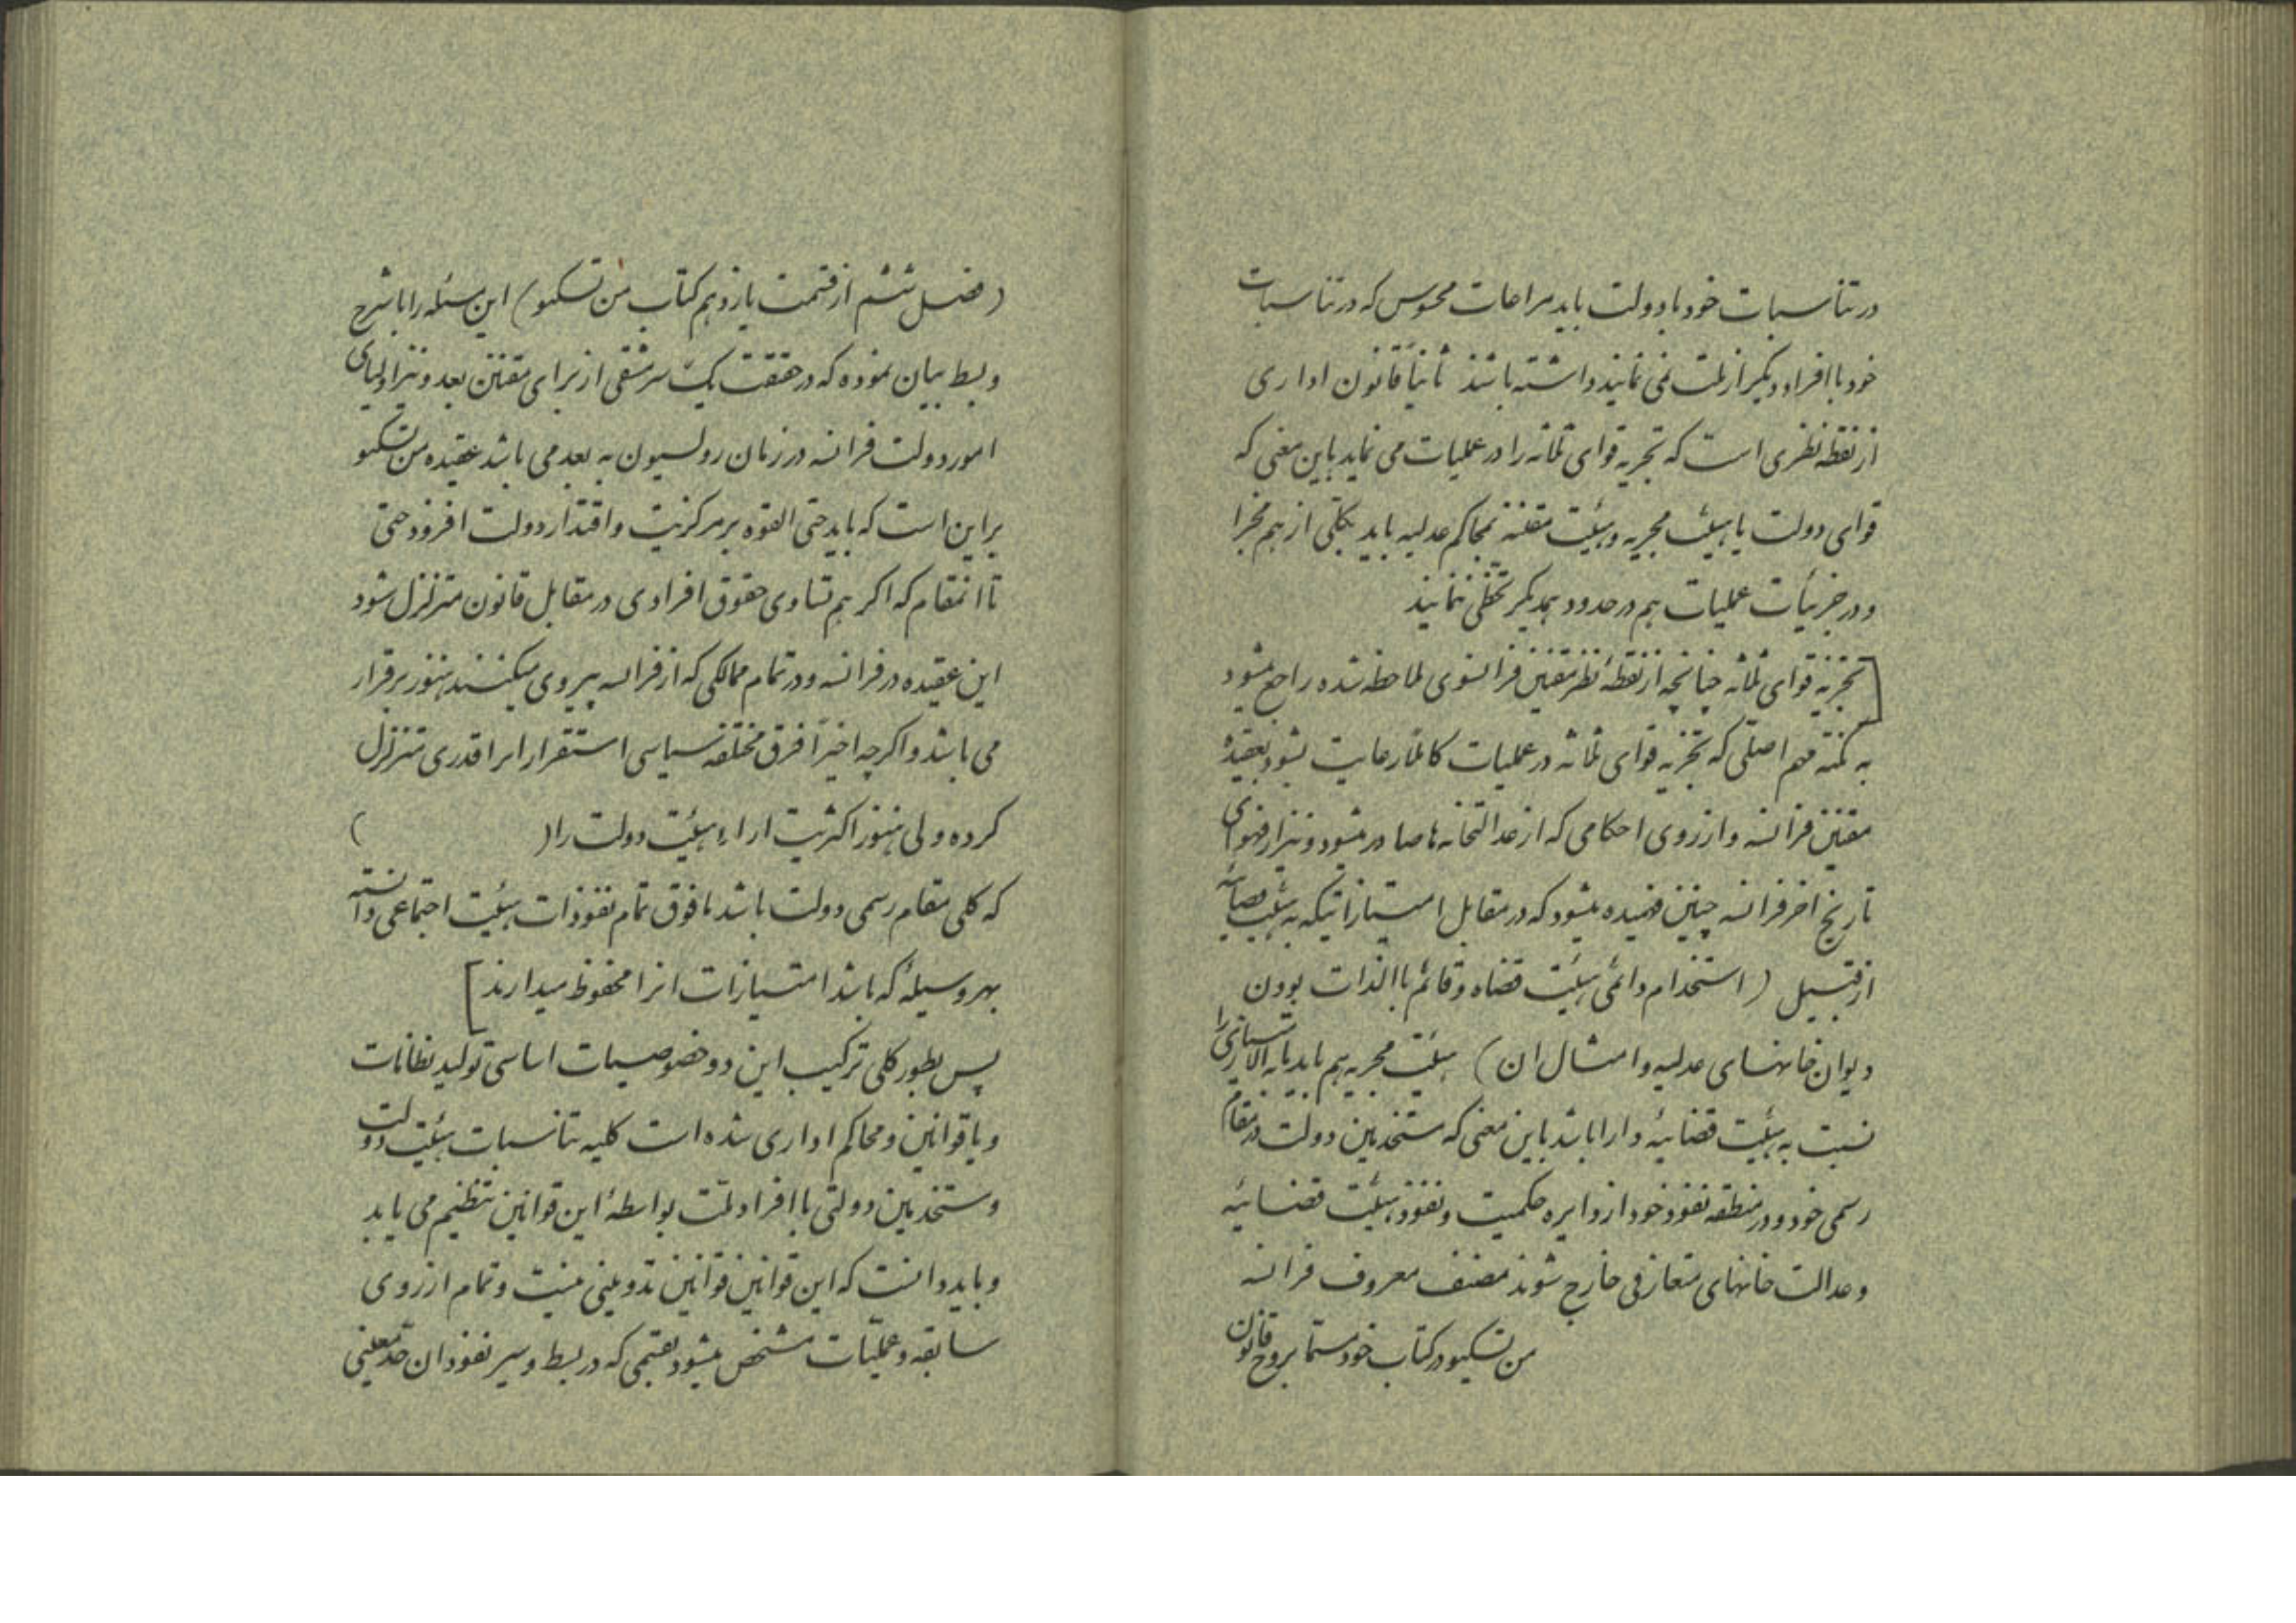 در تناسبات خود با دولت باید مراعات محسوس که در تناسبات
خود با افراد دیگر از ملت نمی نمایند داشته باشند ثانیاً قانون اداری
از نقطه نظری است که تجزیه قوای ثلاثه را در عملیات می نماید باین معنی که
قوای دولت یا هیئت مجریه و هیئت مقننه بمحاکم عدلیه باید بکلی از هم مجزا
و در جزئیات عملیات هم در حدود همدیگر تخطی ننمایند
[تجزیه قوای ثلاثه چنانچه از نقطهٔ نظر مقننین فرانسوی ملاحظه شده راجع میشود
به نکته مهم اصلی که تجزیه قوای ثلاثه در عملیات کاملاً رعایت بشود بعقیدهٔ
مقننین فرانسه و از روی احکامی که از عدالتخانه ها صادر میشود و نیز از فحوای
تاریخ اخر فرانسه چنین فهمیده میشود که در مقابل امتیازاتیکه به هیئت قضائیه
از قبیل (استخدام دائمی هیئت قضاه و قائم باالذات بودن
دیوان خانهای عدلیه و امثال ان) هیئت مجریه هم باید مابه الامتیازی را
نسبت به هیئت قضائیه دارا باشد باین معنی که مستخدمین دولت در مقام
رسمی خود و در منطقه نفوذ خود از دایره حکمیت و نفوذ هیئت قضائیه
و عدالت خانهای متعارفی خارج شوند مصنف معروف فرانسه
من تسکیو در کتاب خود مسما بروح قانون
(فصل ششم از قسمت یازدهم کتاب من تسکیو) این مسئله را با شرح
و بسط بیان نموده که در حقیقت یک سرمشقی از برای مقننین بعد و نیز اولیای
امور دولت فرانسه در زمان رولسیون به بعد می باشد عقیده من تسکیو
براین است که باید حتی القوه بر مرکزیت و اقتدار دولت افزود حتی
تا انمقام که اکر هم تساوی حقوق افرادی در مقابل قانون متزلزل شود
این عقیده در فرانسه و در تمام ممالکی که از فرانسه پیروی میکنند هنوز برقرار
می باشد و اکرچه اخیراً فرق مختلفه سیاسی استقرار انرا قدری متزلزل
کرده ولی هنوز اکثریت اراء هیئت دولت را ( )
که کلی مقام رسمی دولت باشد مافوق تمام نفوذات هیئت اجتماعی دانسته
بهر وسیلهٔ که باشد امتیازات انرا محفوظ میدارند]
پس بطور کلی ترکیب این دو خصوصیات اساسی تولید نظامات
و یا قوانین و محاکم اداری شده است کلیه تناسبات هیئت دولت
و مستخدمین دولتی با افراد ملت بواسطهٔ این قوانین تنظیم می یابد
و باید دانست که این قوانین قوانین تدوینی نیست و تمام از روی
سابقه و عملیات مشخص میشود بقسمی که در بسط و سیر نفوذ ان حد معینی